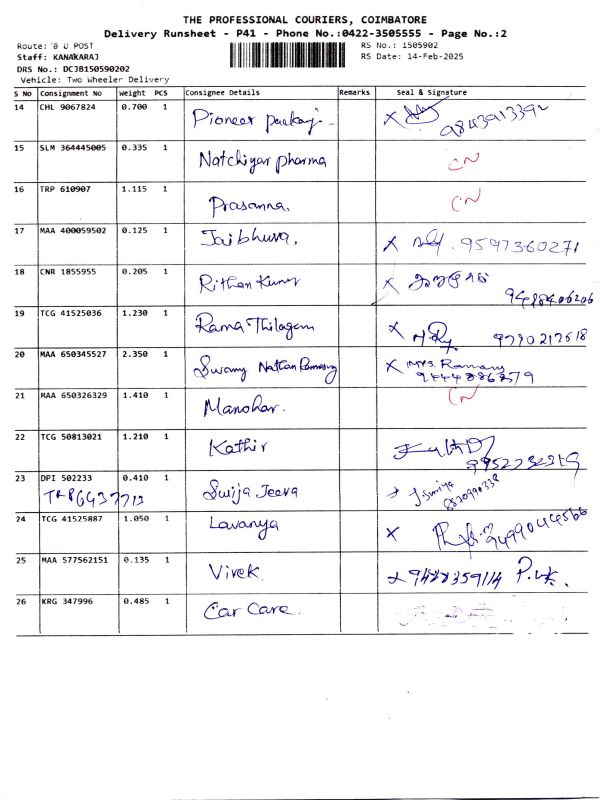 THE PROFESSIONAL COURIERS, COIMBATORE
Delivery Runsheet - P41 - Phone No.:0422-3505555 - Page No.:2
Route: U POST
Staff: KANAKARAJ
DRS No.: DCJB150590202
Vehicle: Two Wheeler Delivery
RS No.: 1505902
RS Date: 14-Feb-2025
S No Consignment No Weight PCS Consignee Details Remarks Seal & Signature
14 CHL 9067824 0.700 1 Pioneer X 9843913392
15 SLM 364445005 0.335 1 Natchiyar pharma CN
16 TRP 610907 1.115 1 Prasanna. CN
17 MAA 400059502 0.125 1 Jaibhuva. X 9597360271
18 CNR 1855955 0.205 1 Rithan Kumar X 9488406206
19 TCG 41525036 1.230 1 Rama Thilagam X 9790212518
20 MAA 650345527 2.350 1 Swamy Nathan X Mrs. Ramany
9444886279
21 MAA 650326329 1.410 1 Manohar. CN
22 TCG 50813021 1.210 1 Kathir
23 DPI 502233 0.410 1 Swija Jeeva J Sumiya
8820990338
24 TCG 41525887 1.050 1 Lavanya X 9499044566
25 MAA 577562151 0.135 1 Vivek. 9488359114
26 KRG 347996 0.485 1 Car Care.